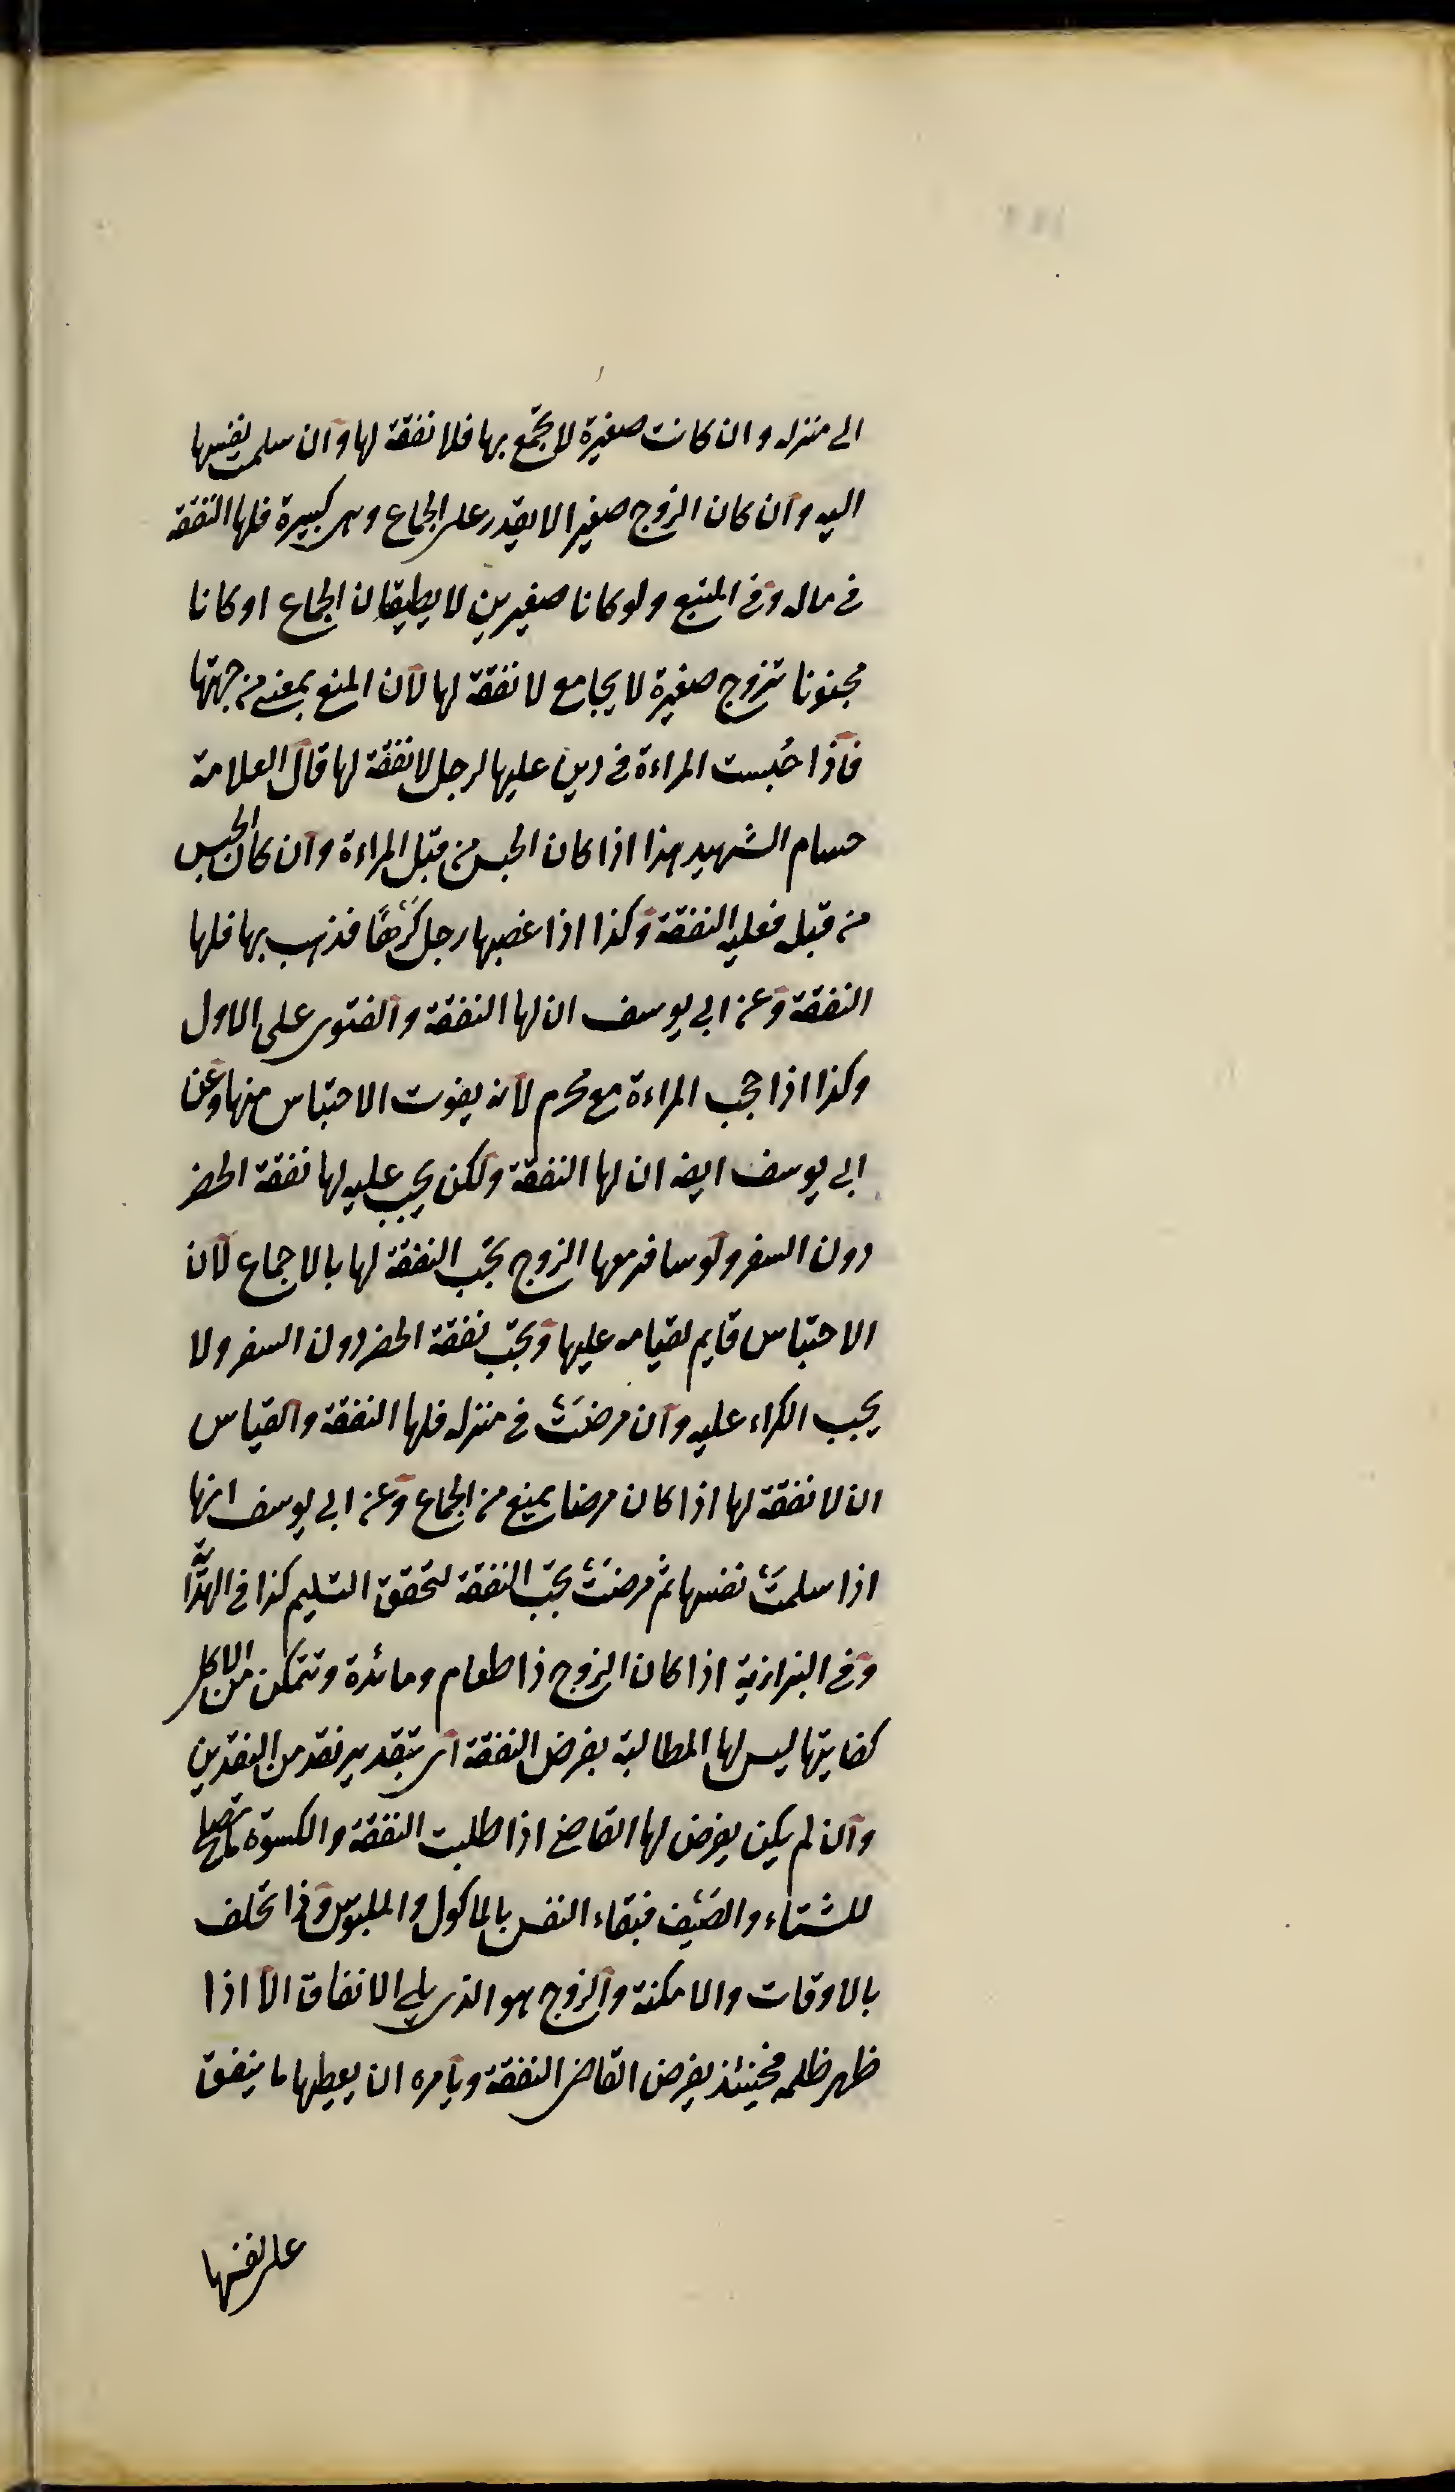 الى منزله وان كانت صغيرة لا يجمع بها فلا نفقة لها وان سلمت نفسها
اليه وان كان الزوج صغيرا لا يقدر على الجماع وهى كبيرة فلها النفقة
فى ماله وفى المنبع ولو كانا صغيرين لا يطيقان الجماع او كانا
مجنونا تزوج صغيرة لا يجامع لا نفقة لها لان المنع بمعنى من جهتها
فاذا حُبست المراءة فى دين عليها لرجل لا نفقة لها قال العلامة
حسام الشهيد هذا اذا كان الحبس من قبل المراءة وان كان الحبس
من قبله فعليه النفقة وكذا اذا غصبها رجل كَرْهًا فذهب بها فلها
النفقة وعن ابى يوسف ان لها النفقة والفتوى على الاول
وكذا اذا حجب المراءة مع محرم لانه يفوت الاحتباس منها وعن
ابى يوسف ايضه ان لها النفقة ولكن يجب عليه لها نفقة الحضر
دون السفر ولو سافر معها الزوج تجب النفقة لها بالاجماع لان
الاحتباس قايم لقيامه عليها وتجب نفقة الحضر دون السفر ولا
يجب الكراء عليه وان مرضَتْ فى منزله فلها النفقة والقياس
ان لا نفقة لها اذا كان مرضا يمنع من الجماع وعن ابى يوسف انها
اذا سلمَتْ نفسها ثم مرضَتْ تجب النفقة لتحقق التسليم كذا فى الهداية
وفى البزازية اذا كان الزوج ذا طعام ومائدة وتتمكن من الاكل
كفايتها ليس لها المطالبة بفرض النفقة اى بتقدير نقد من النقدين
وان لم يكن يفرض لها القاضى اذا طلبت النفقة والكسوة ما تصلح
للشتاء والصَيْف فبقاء النفس بالماكول والملبوس وذا تخلف
بالاوقات والامكنة والزوج هو الذى يلى الانفاق الا اذا
ظهر ظلمه فحينئذ يفرض القاضى النفقة ويامره ان يعطيها ما ينفق
على نفسها